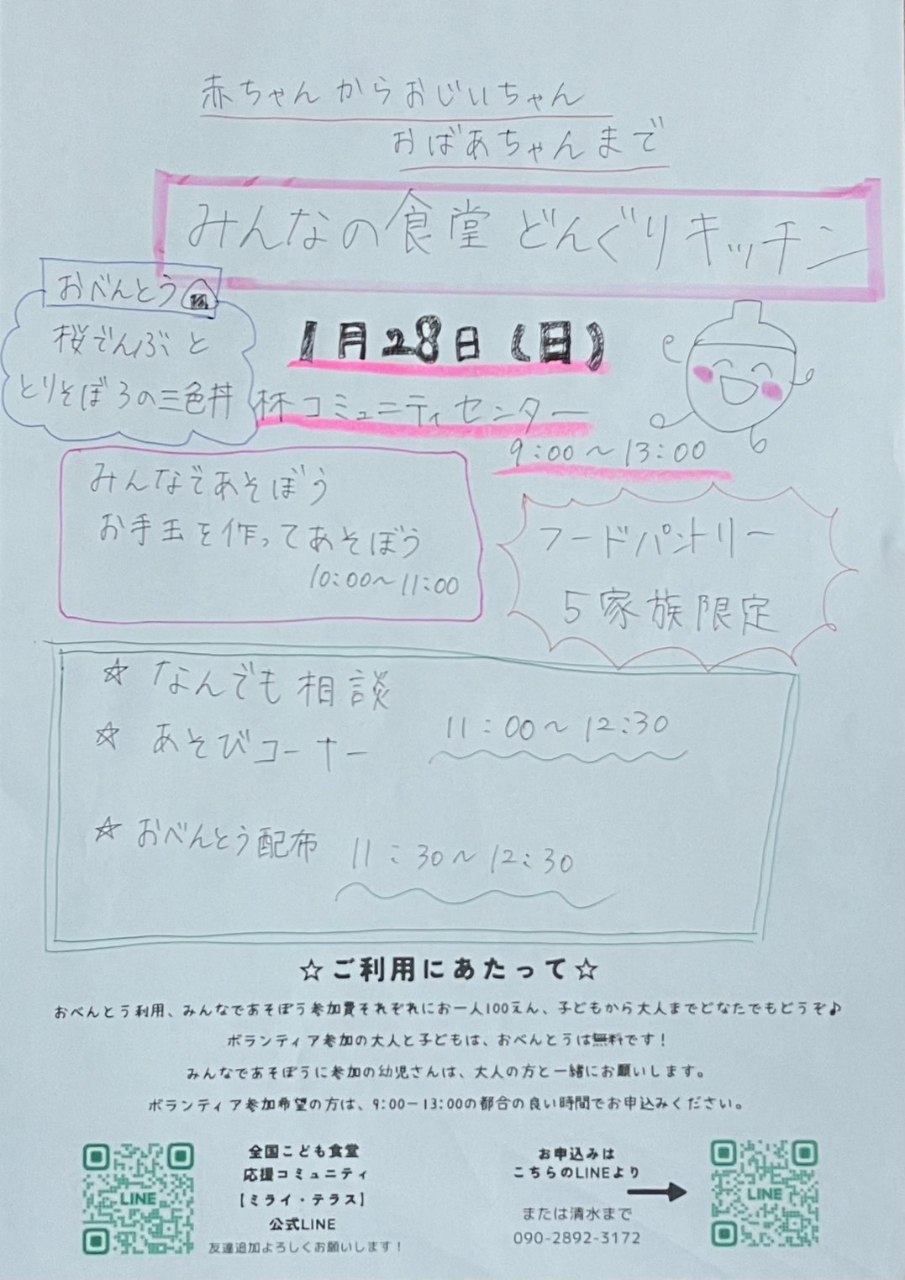 赤ちゃんからおじいちゃん
おばあちゃんまで
みんなの食堂 どんぐりキッチン
おべんとう
桜でんぶと
とりそぼろの三色丼
1月28日(日)
林コミュニティセンター
9:00～13:00
みんなであそぼう
お手玉を作ってあそぼう
10:00～11:00
フードパントリー
5家族限定
☆ なんでも相談
☆ あそびコーナー 11:00～12:30
☆ おべんとう配布 11:30～12:30
☆ご利用にあたって☆
おべんとう利用、みんなであそぼう参加費それぞれにお一人100えん、子どもから大人までどなたでもどうぞ♪
ボランティア参加の大人と子どもは、おべんとうは無料です！
みんなであそぼうに参加の幼児さんは、大人の方と一緒にお願いします。
ボランティア参加希望の方は、9:00－13:00の都合の良い時間でお申込みください。
LINE
全国こども食堂
応援コミュニティ
【ミライ・テラス】
公式LINE
友達追加よろしくお願いします！
お申込みは
こちらのLINEより
または清水まで
090-2892-3172
LINE